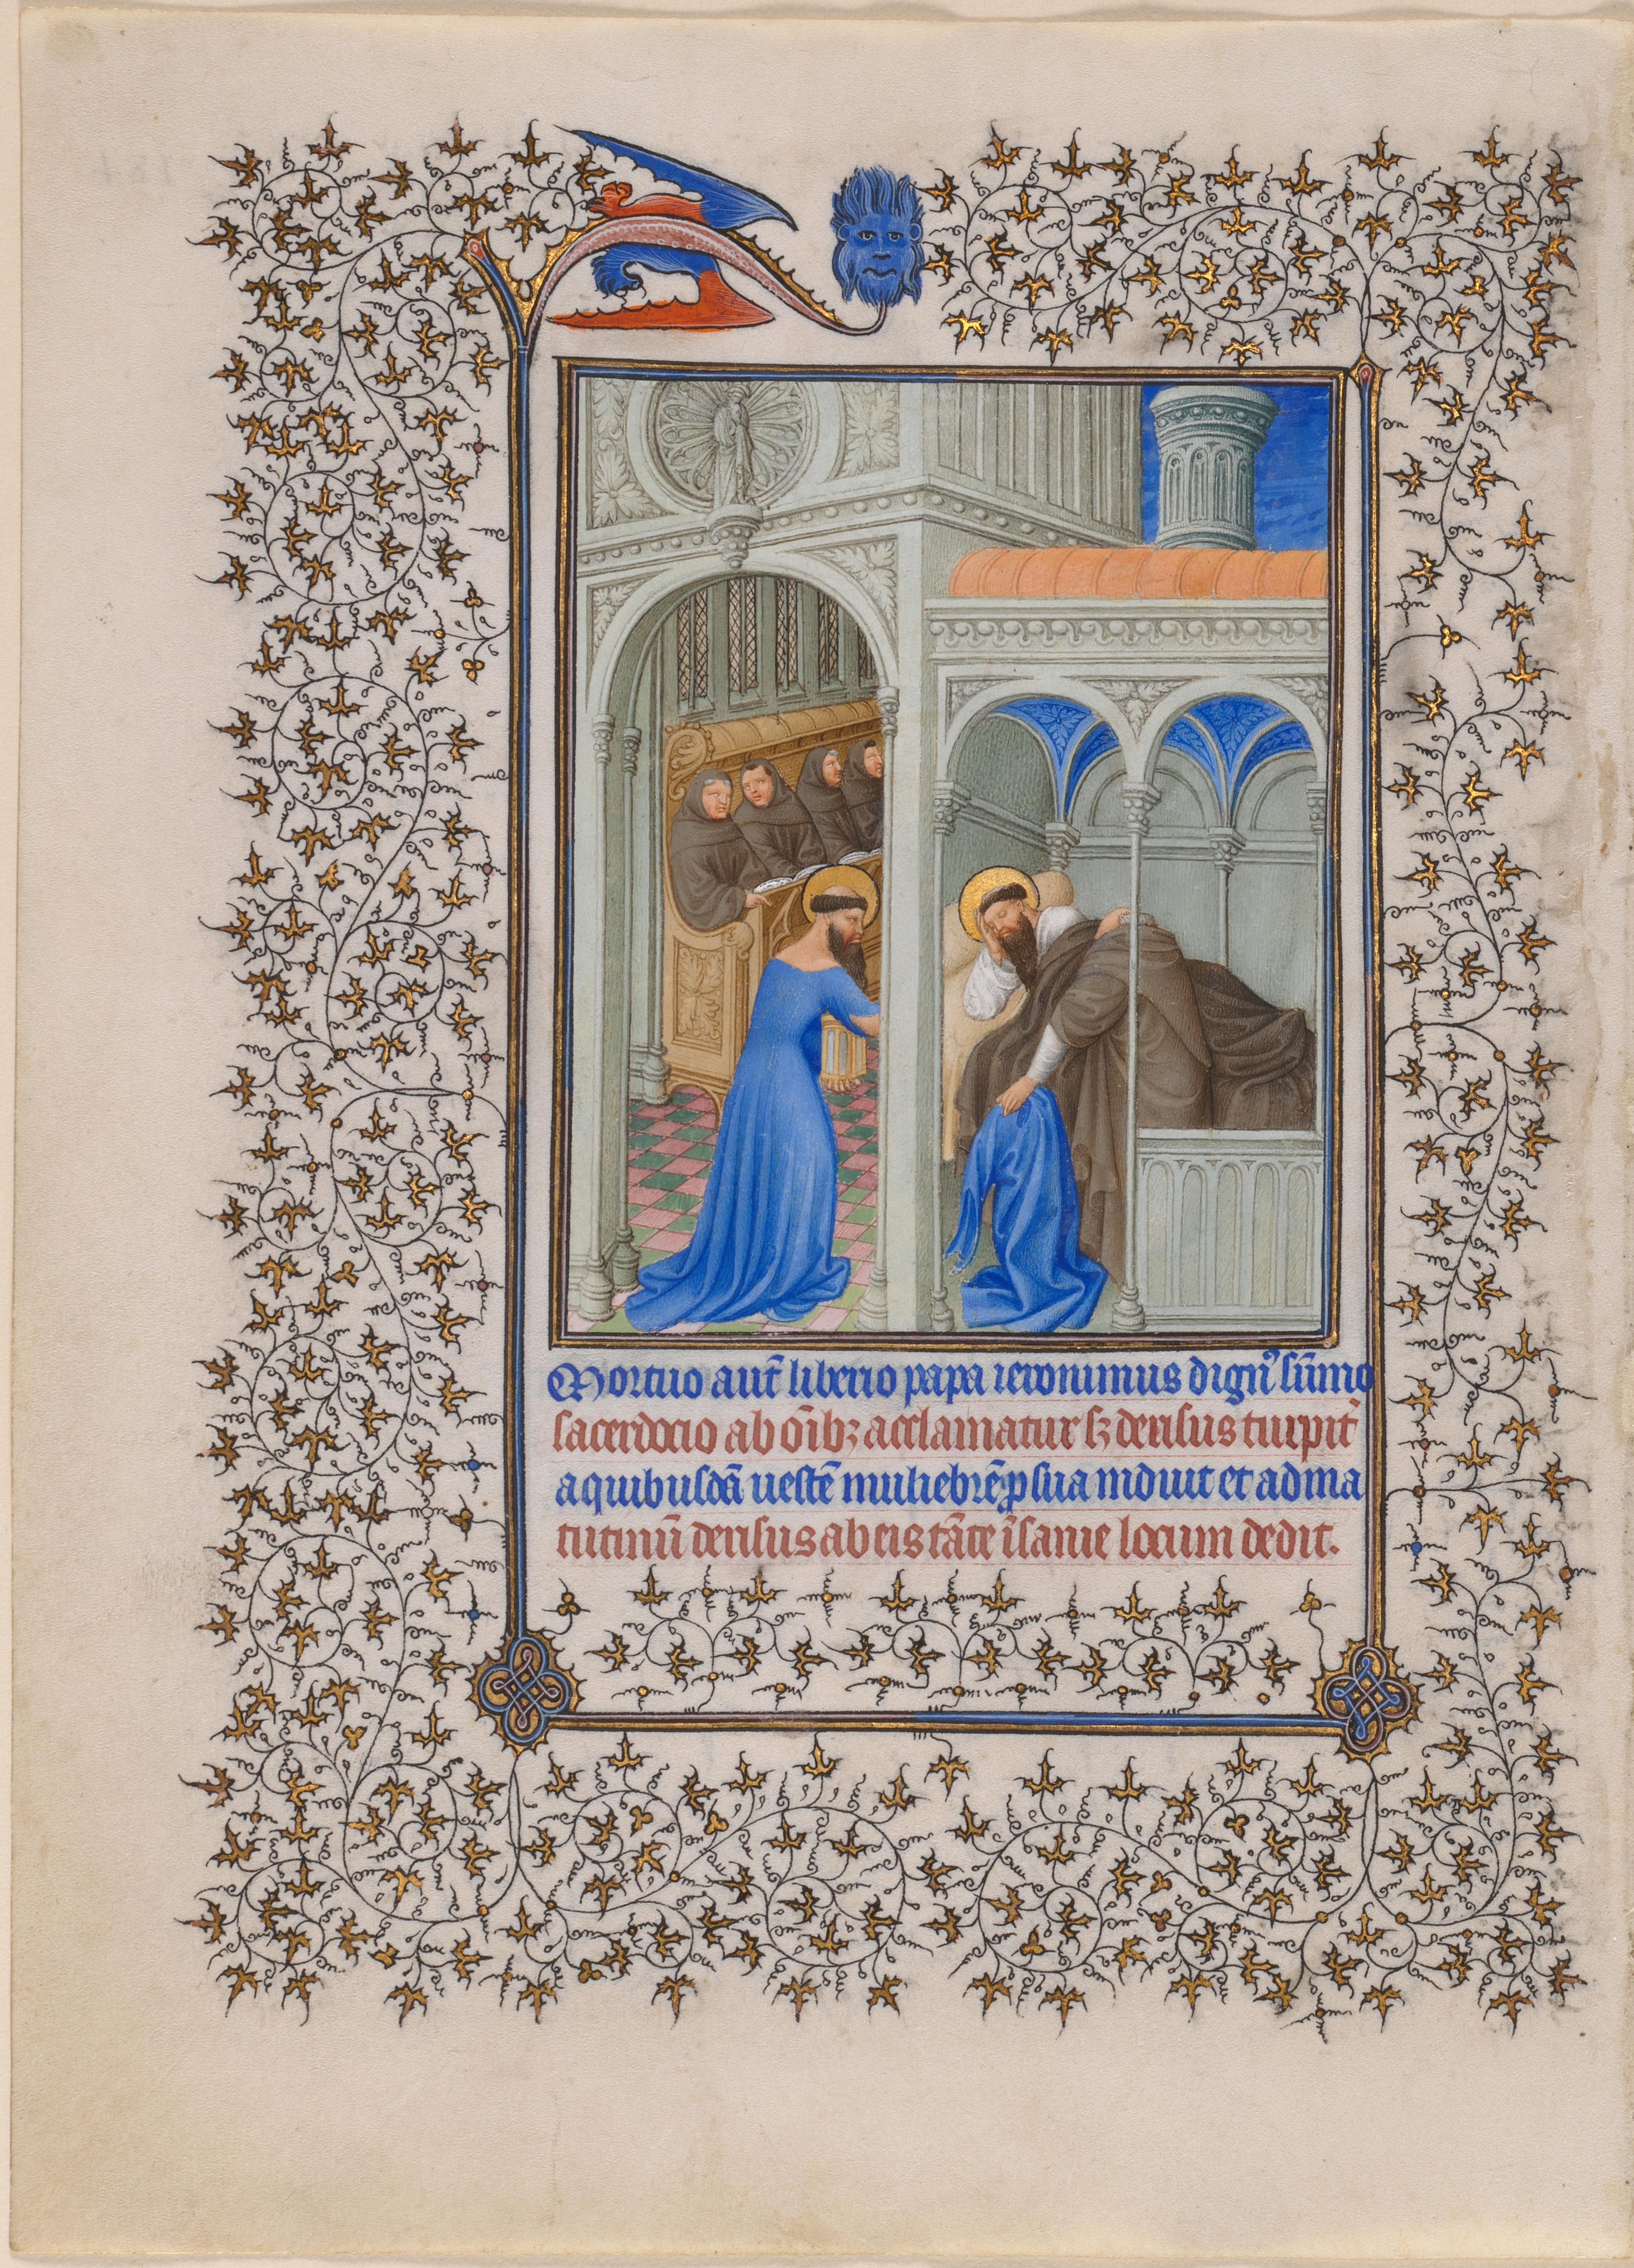 Mortuo aut̄ liberio papa ieronimus dignꝰ sūmo
sacerdocio ab oībꝫ acclamatur sꝫ derisus turpit̄
a quibusdā uestē muliebrē ꝓ sua induit et ad ma
tutinū derisus ab eis tāte īsanie locum dedit.